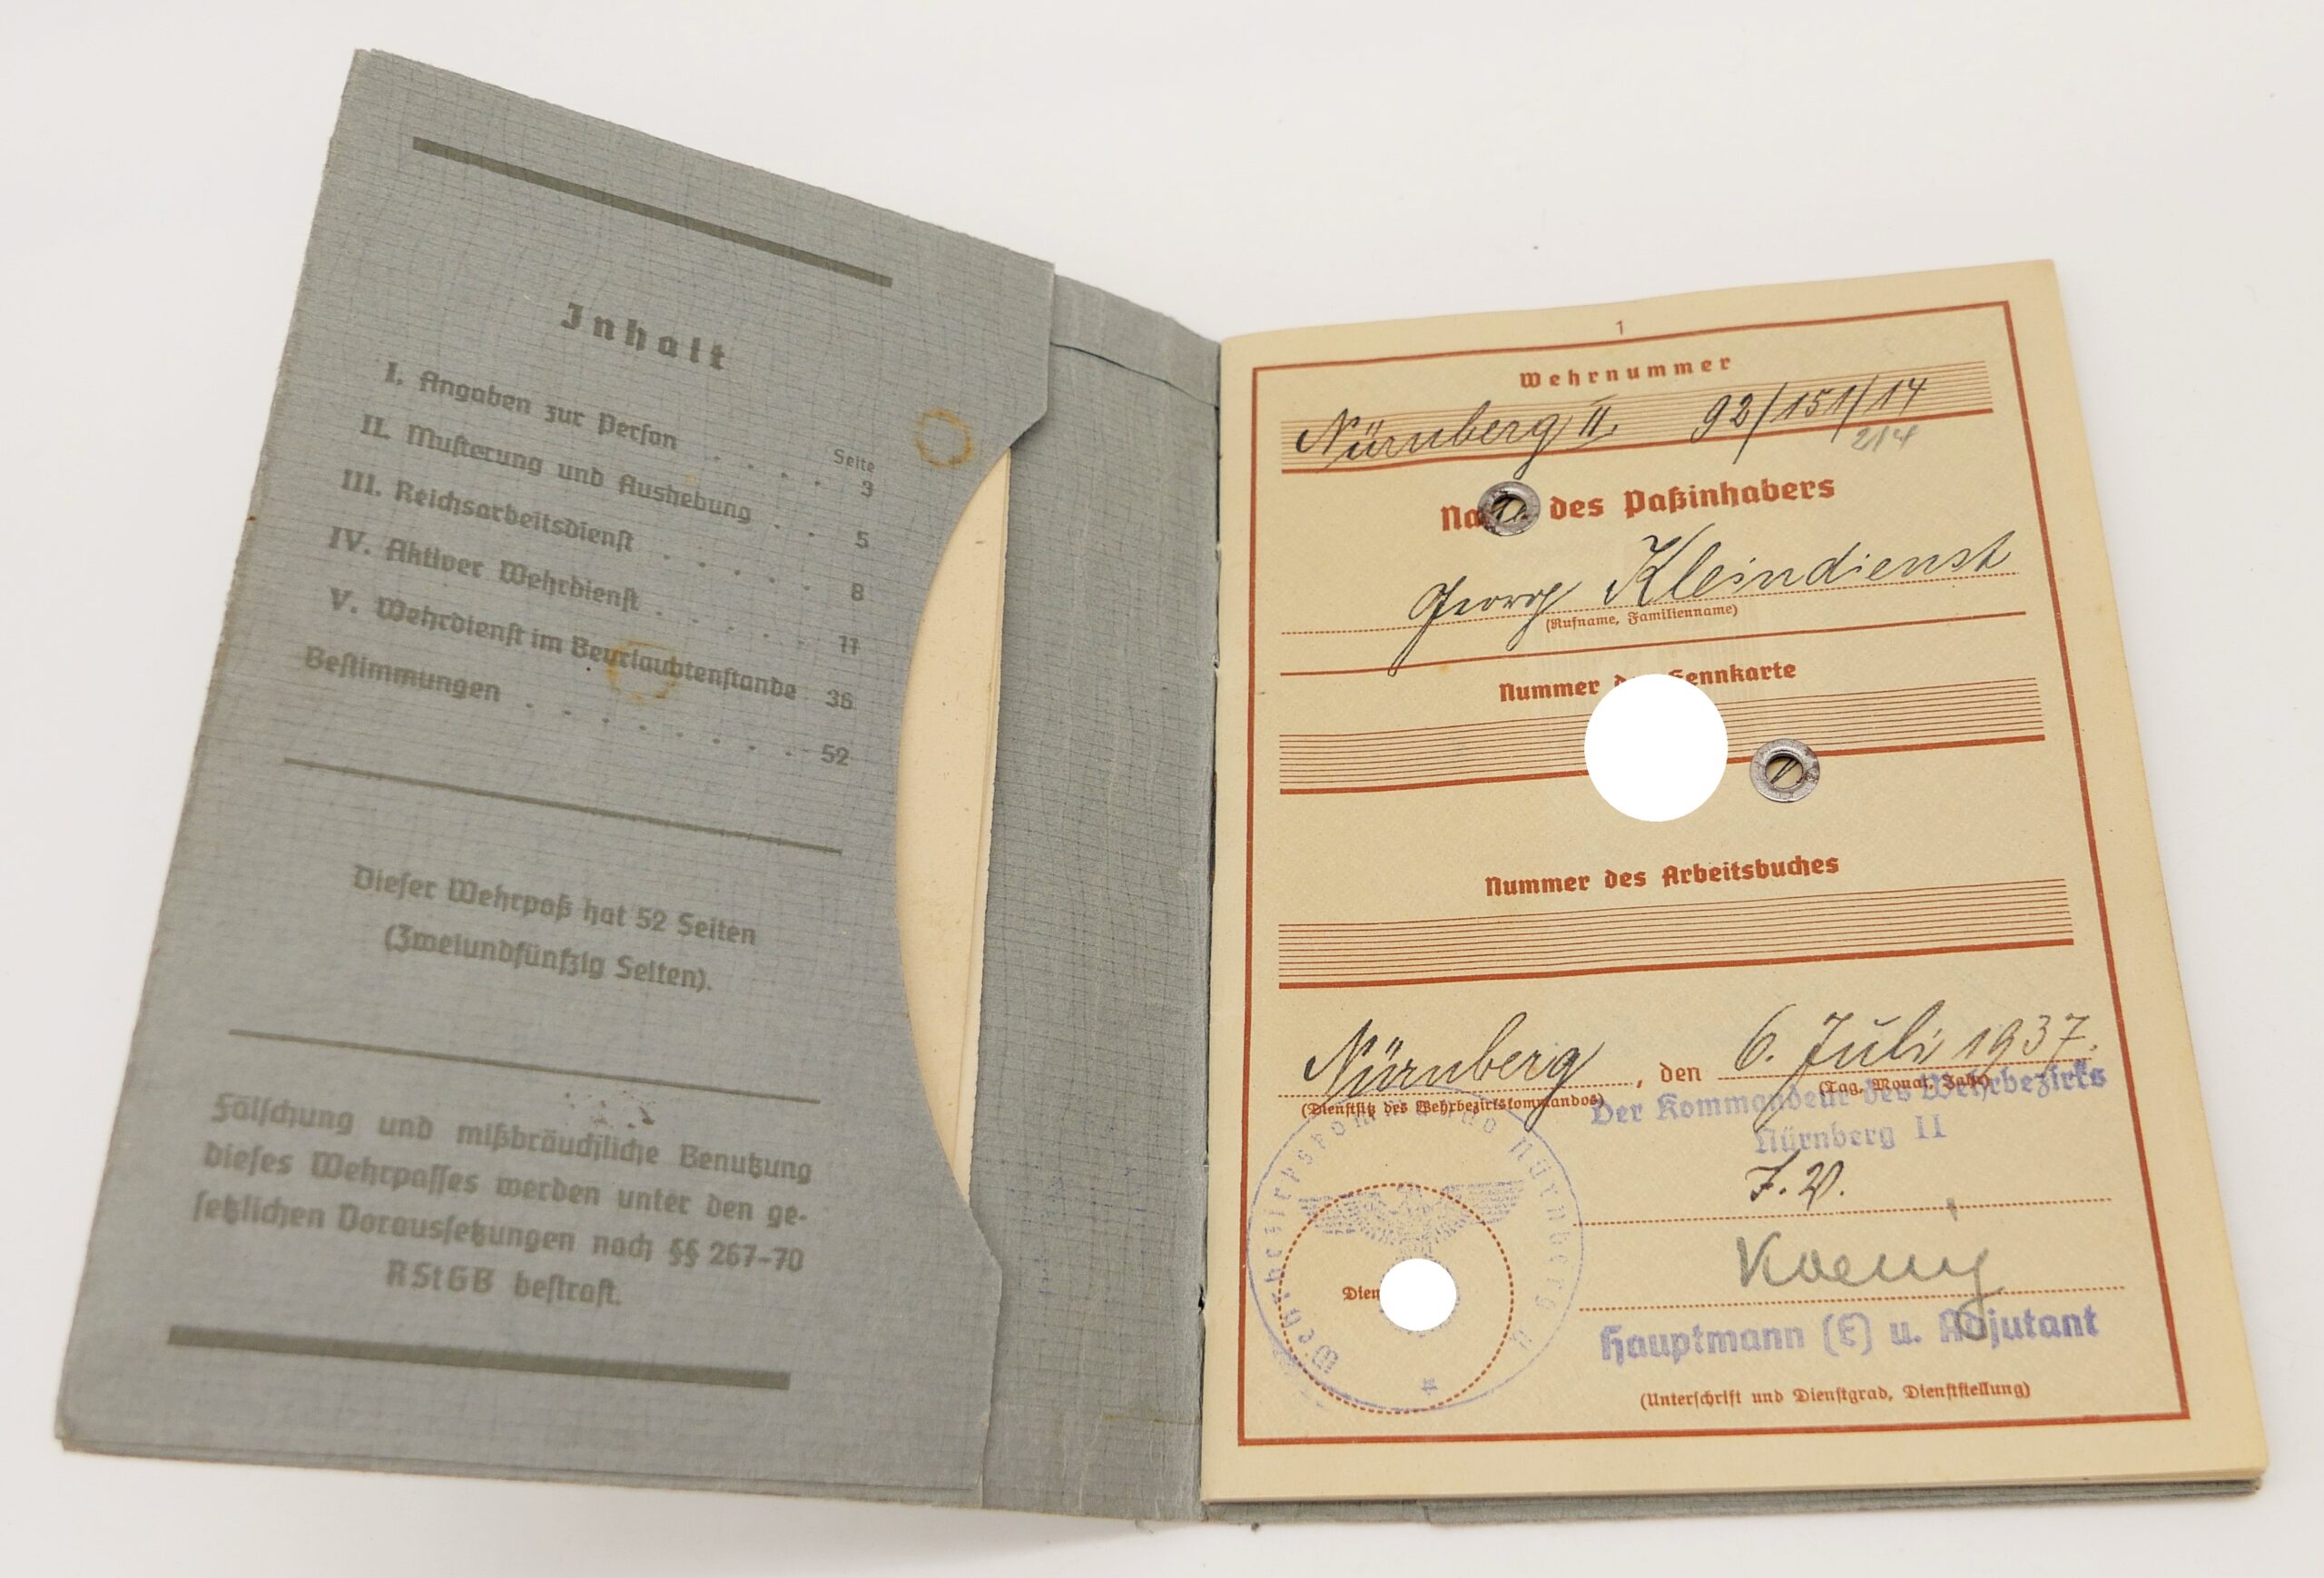 Inhalt
Seite
I. Angaben zur Person . . . . 3
II. Musterung und Aushebung . . 5
III. Reichsarbeitsdienst . . . . . . 8
IV. Aktiver Wehrdienst . . . . . . 11
V. Wehrdienst im Beurlaubtenstande 36
Bestimmungen . . . . . . . . 52
Dieser Wehrpaß hat 52 Seiten
(Zweiundfünfzig Seiten).
Fälschung und mißbräuchliche Benutzung
dieses Wehrpasses werden unter den ge-
setzlichen Voraussetzungen nach §§ 267-70
RStGB bestraft.
1
Wehrnummer
Nürnberg II. 92/151/14
214
des Paßinhabers
Georg Kleindienst
(Rufname, Familienname)
Nummer Kennkarte
Nummer des Arbeitsbuches
Nürnberg, den 6. Juli 1937.
(Dienstsitz des Wehrbezirkskommandos) (Tag, Monat, Jahr)
Der Kommandeur des Wehrbezirks
Nürnberg II
J.V.
Koenig
Hauptmann (E) u. Adjutant
(Unterschrift und Dienstgrad, Dienststellung)
Wehrbezirkskommando Nürnberg II